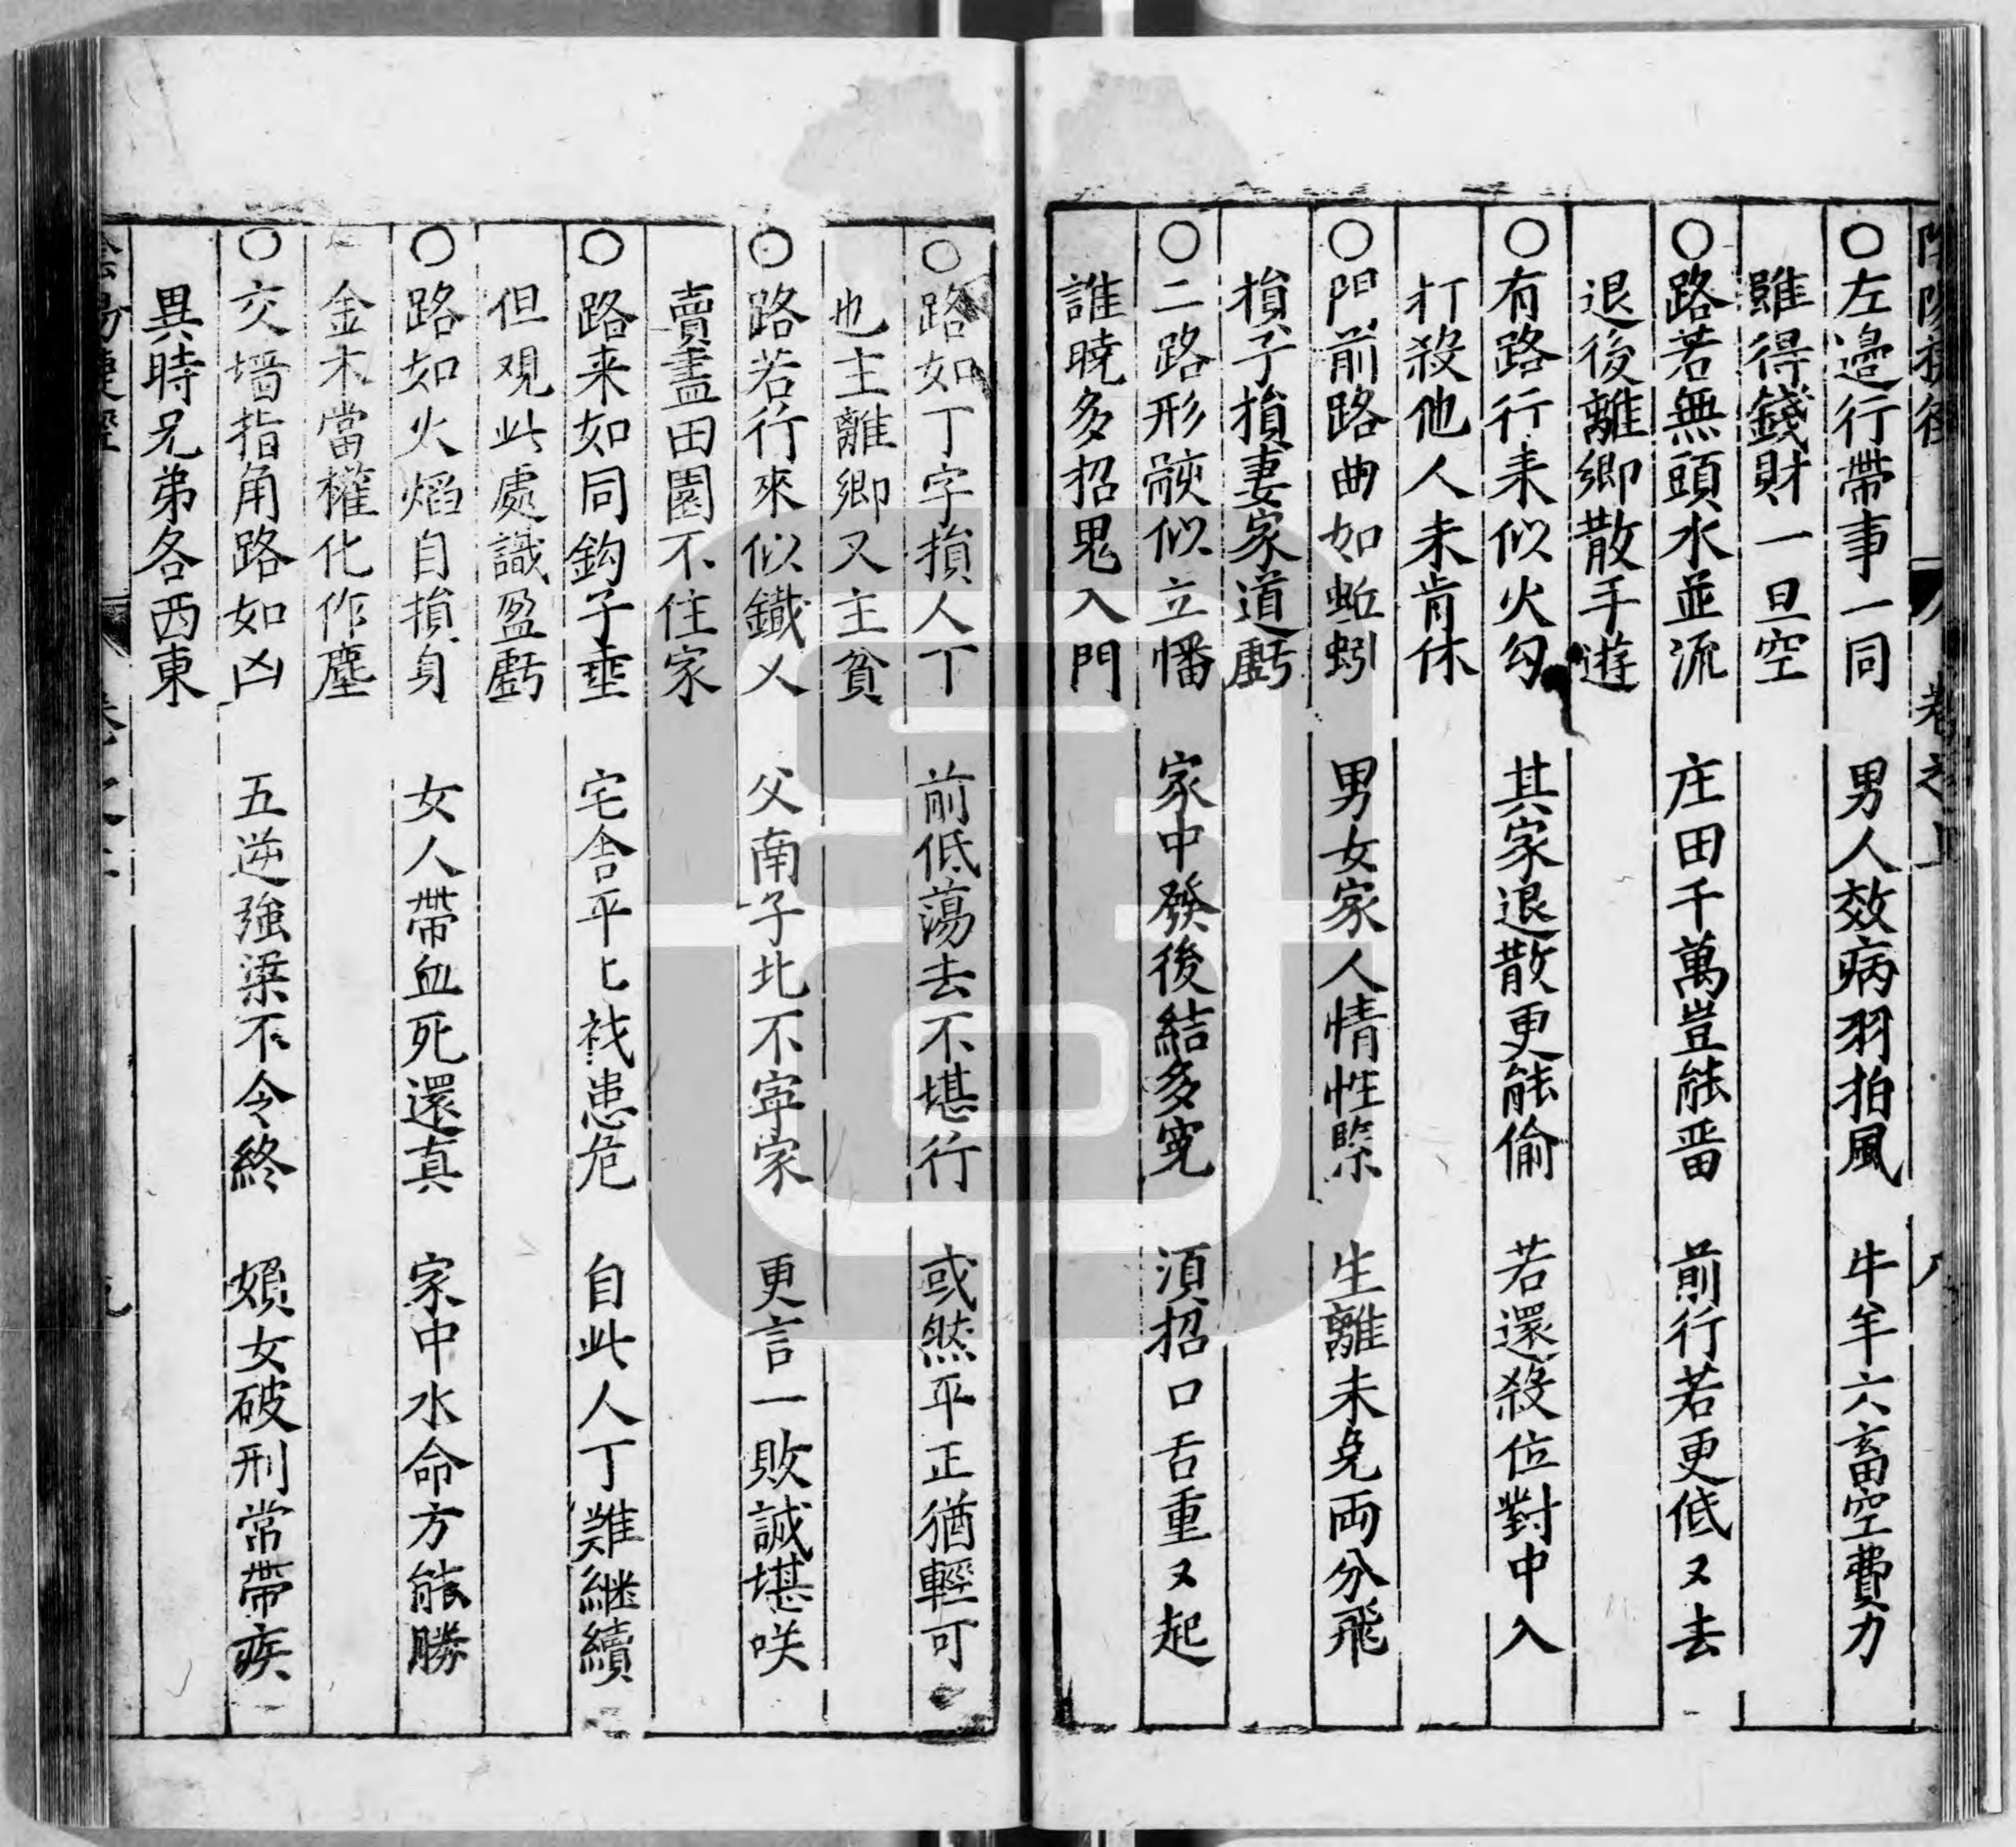 ○左邉行帶事一同　男人效病羽拍風　牛羊六畜空費力
雖得錢財一旦空
○路若無頭水並流　庄田千萬豈能畱　前行若更低又去
退後離鄉散手遊
○有路行来似火勾　其家退散更能偷　若還殺位對中入
打殺他人未肯休
○門前路曲如蚯蚓　男女家人情性緊　生離未免両分飛
損子損妻家道虧
○二路形　似立幡　家中發後結多寃　湏招口舌重又起
誰曉多招鬼入門
○路如丁字損人丁　前低蕩去不堪行　或然平正猶輕可
也主離鄉又主貧
○路若行來似鐵乂　父南子北不寜家　更言一敗誠堪咲
賣盡田園不住家
○路来如同鈎子垂　宅舍平匕　患危　自此人丁難継續
但观此處識盈虧
○路如火焰自損身　女人帶血死還真　家中水命方能勝
金木當權化作塵
○交墻指角路如凶　五逆強梁不令終　女破刑常帶疾
異時兄弟各西東